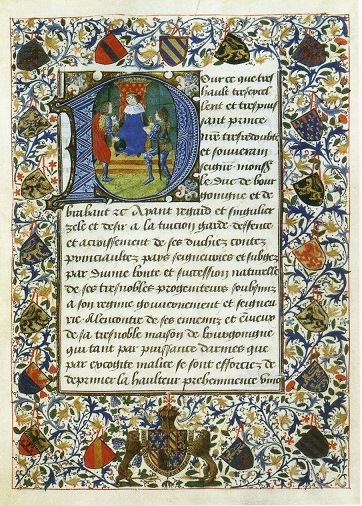 Pour ce que tres
hault tresexcel
lent et trespuis
sant prince
nre tresredoubte
et souverain
seignr monss
le Duc de bour
gongne et de
brabant zc Ayant regard et singulier
zele et desir a la tuicion garde deffence
et acroissement de ses duchies contez
principaultez pays seigneuries et subgez
par Divine bonte et succession naturelle
de ses tresnobles progeniteurs soubzmis
a son regime gouvernement et seigneu
rie Alencontre de ses ennemis et envieux
de sa tresnoble maison de bourgongne
qui tant par puissance darmes que
par excogitee malice se sont efforciez de
deprimer la haulteur preheminence